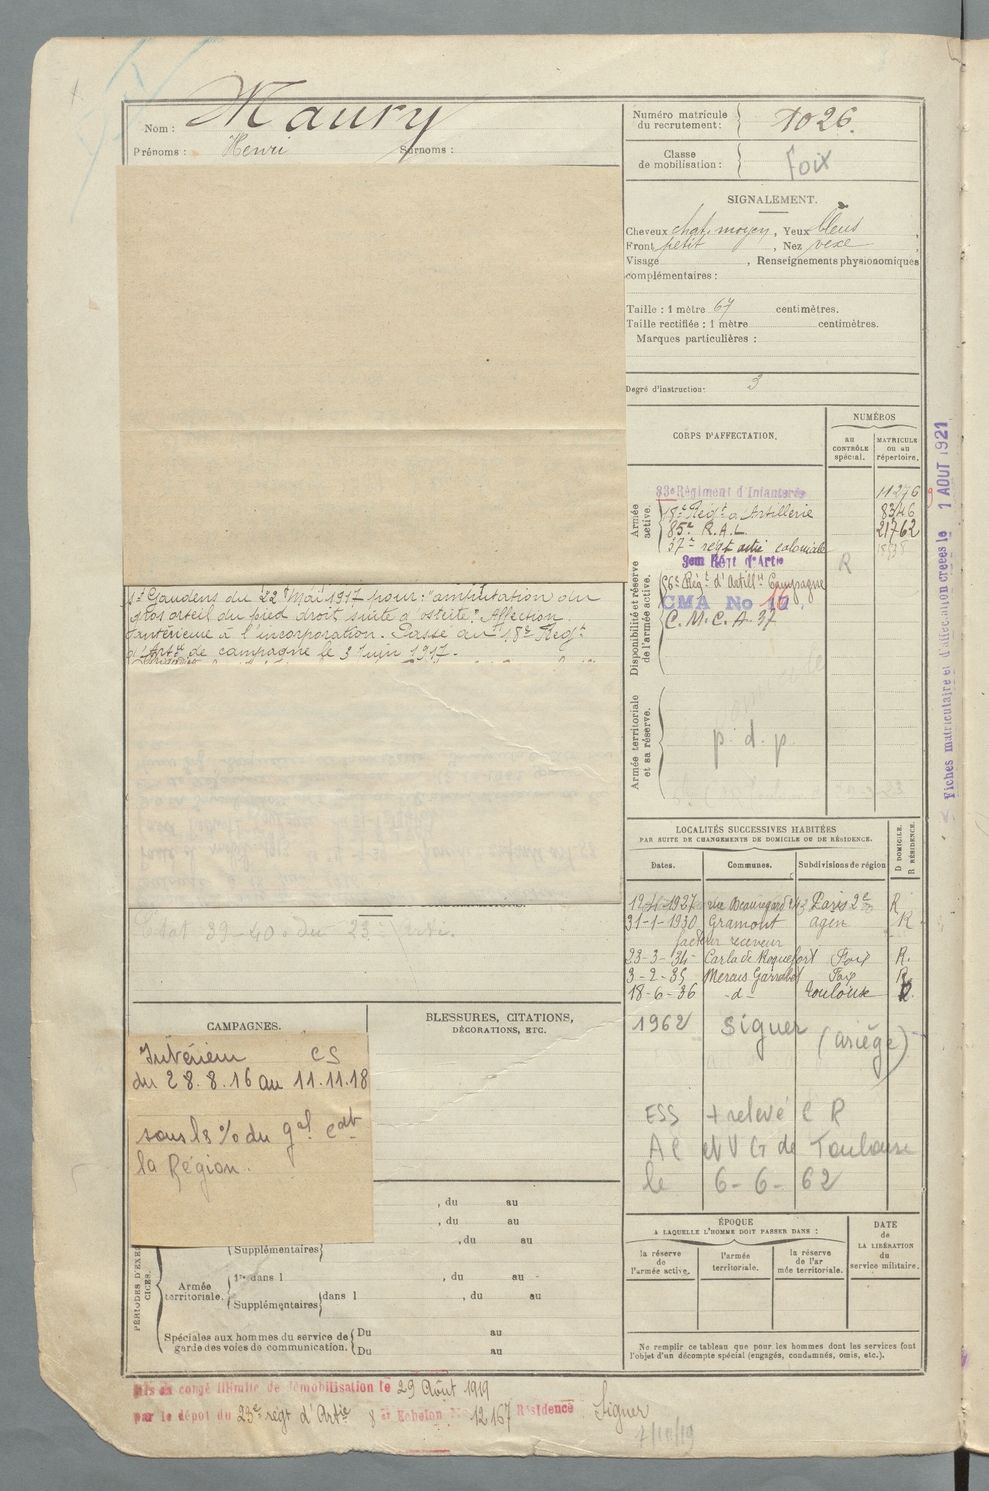 Nom : Maury
Prénoms : Henri Surnoms :
Numéro matricule du recrutement : 1026.
Classe de mobilisation : Foix
SIGNALEMENT.
Cheveux chat. moyen, Yeux bleus
Front petit, Nez vexe
Visage , Renseignements physionomiques
complémentaires :
Taille : 1 mètre 67 centimètres.
Taille rectifiée : 1 mètre centimètres.
Marques particulières :
Degré d'instruction : 3
CORPS D'AFFECTATION.
NUMÉROS
au contrôle spécial.
MATRICULE ou au répertoire.
Armée active.
83e Régiment d'Infanterie 11276
18e Régt d'Artillerie 8346
85e R.A.L. 21762
37e regt artie coloniale
Disponibilité et réserve de l'armée active.
3em Régt d'Artie
R
56e Régt d'Artillie Campagne
CMA No 17
C.M.C.A. 37
Armée territoriale et sa réserve.
p. d. p.
St Gaudens du 22 Mai 1917 pour : "amputation du
gros orteil du pied droit suite d'ostéite". Affection
antérieure à l'incorporation. Passé au 18e Régt
d'Artie de campagne le 3 Juin 1917.
Etat 39-40 du 23e
LOCALITÉS SUCCESSIVES HABITÉES
PAR SUITE DE CHANGEMENTS DE DOMICILE OU DE RÉSIDENCE.
Dates. Communes. Subdivisions de région D DOMICILE. R RÉSIDENCE.
12-4-1927 rue Beauregard 42 Paris 2e R
31-1-1930 Gramont agen R
facteur receveur
23-3-34 Carla de Roquefort Foix R.
3-2-35 Foix R.
18-6-36 -d- Toulouse R.
1962 Siguer (ariège)
ESS + relevé C R
AC et V G de Toulouse
le 6-6-62
CAMPAGNES.
Intérieur CS
du 28.8.16 au 11.11.18
sous le % du gal Cdt
la Région.
BLESSURES, CITATIONS,
DÉCORATIONS, ETC.
, du au
, du au
Supplémentaires , du au
PÉRIODES D'EXERCICES.
Armée territoriale.
1re dans l , du au
Supplémentaires dans l , du au
Spéciales aux hommes du service de garde des voies de communication.
Du au
Du au
ÉPOQUE
A LAQUELLE L'HOMME DOIT PASSER DANS :
la réserve de l'armée active.
l'armée territoriale.
la réserve de l'armée territoriale.
DATE de LA LIBÉRATION du service militaire.
Ne remplir ce tableau que pour les hommes dont les services font
l'objet d'un décompte spécial (engagés, condamnés, omis, etc.).
Mis en congé illimité de démobilisation le 29 Août 1919
par le dépôt du 23e régt d'Artie 8e Echelon No 12167 Résidence Siguer
7/10/19
Fiches matriculaire et d'affectation créées le 1 AOUT 1921